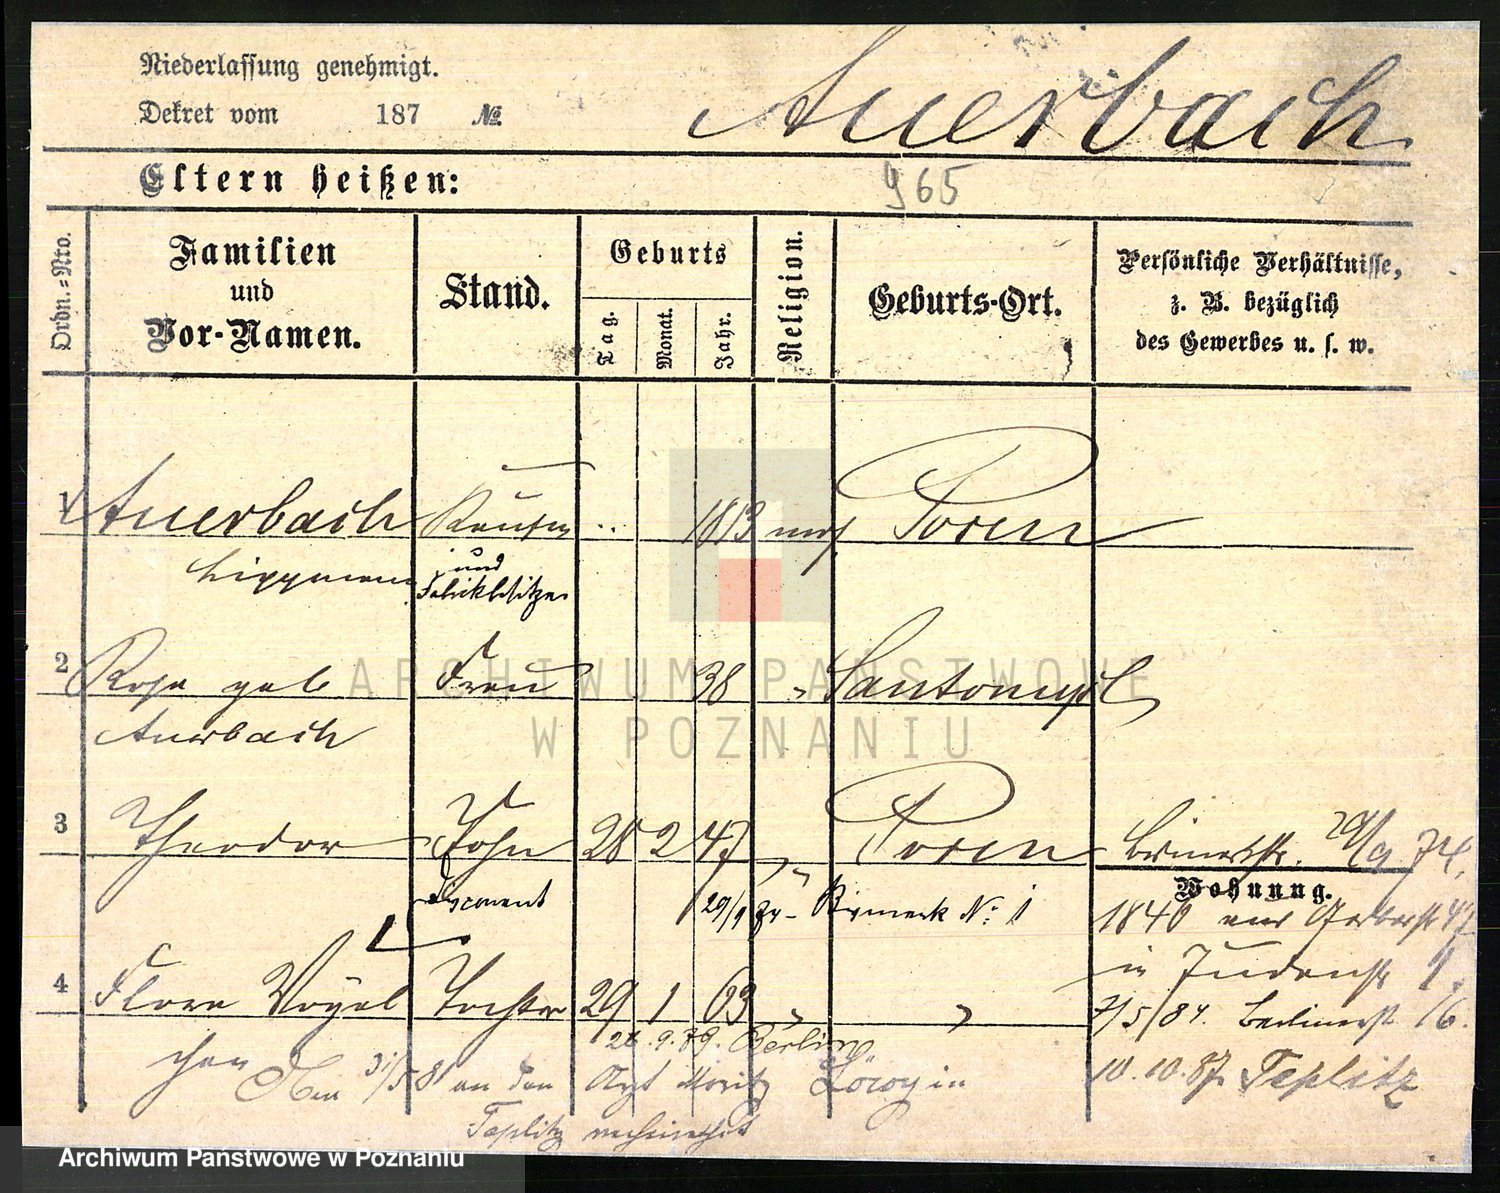 Niederlassung genehmigt.
Dekret vom 187 №
Auerbach
Eltern heißen:
965
Ordn.=Nro.
Familien und Vor-Namen.
Stand.
Geburts
Tag.
Monat.
Jahr.
Religion.
Geburts-Ort.
Persönliche Verhältnisse,
z. B. bezüglich
des Gewerbes u. s. w.
1 Auerbach Kaufm 1813 mos Posen
Lippmann und
Fabrikbesitzer
2 Rosa geb Frau 38 " Santomysl
Auerbach
3 Theodor Sohn 28 2 47 " Posen 29/9 74.
Wohnung.
29/9 Bismarck No: 1
1840
in Judenstr 1.
4 Flora Vögel Tochter 29 1 63 " "
7/5/84. Berlinerstr 16.
chen
26.9.89. Berlin
31/5 81 an den Arzt Moritz Löwy in
10.10.87 Teplitz
Teplitz verheirathet
ARCHIWUM PAŃSTWOWE
W POZNANIU
Archiwum Państwowe w Poznaniu